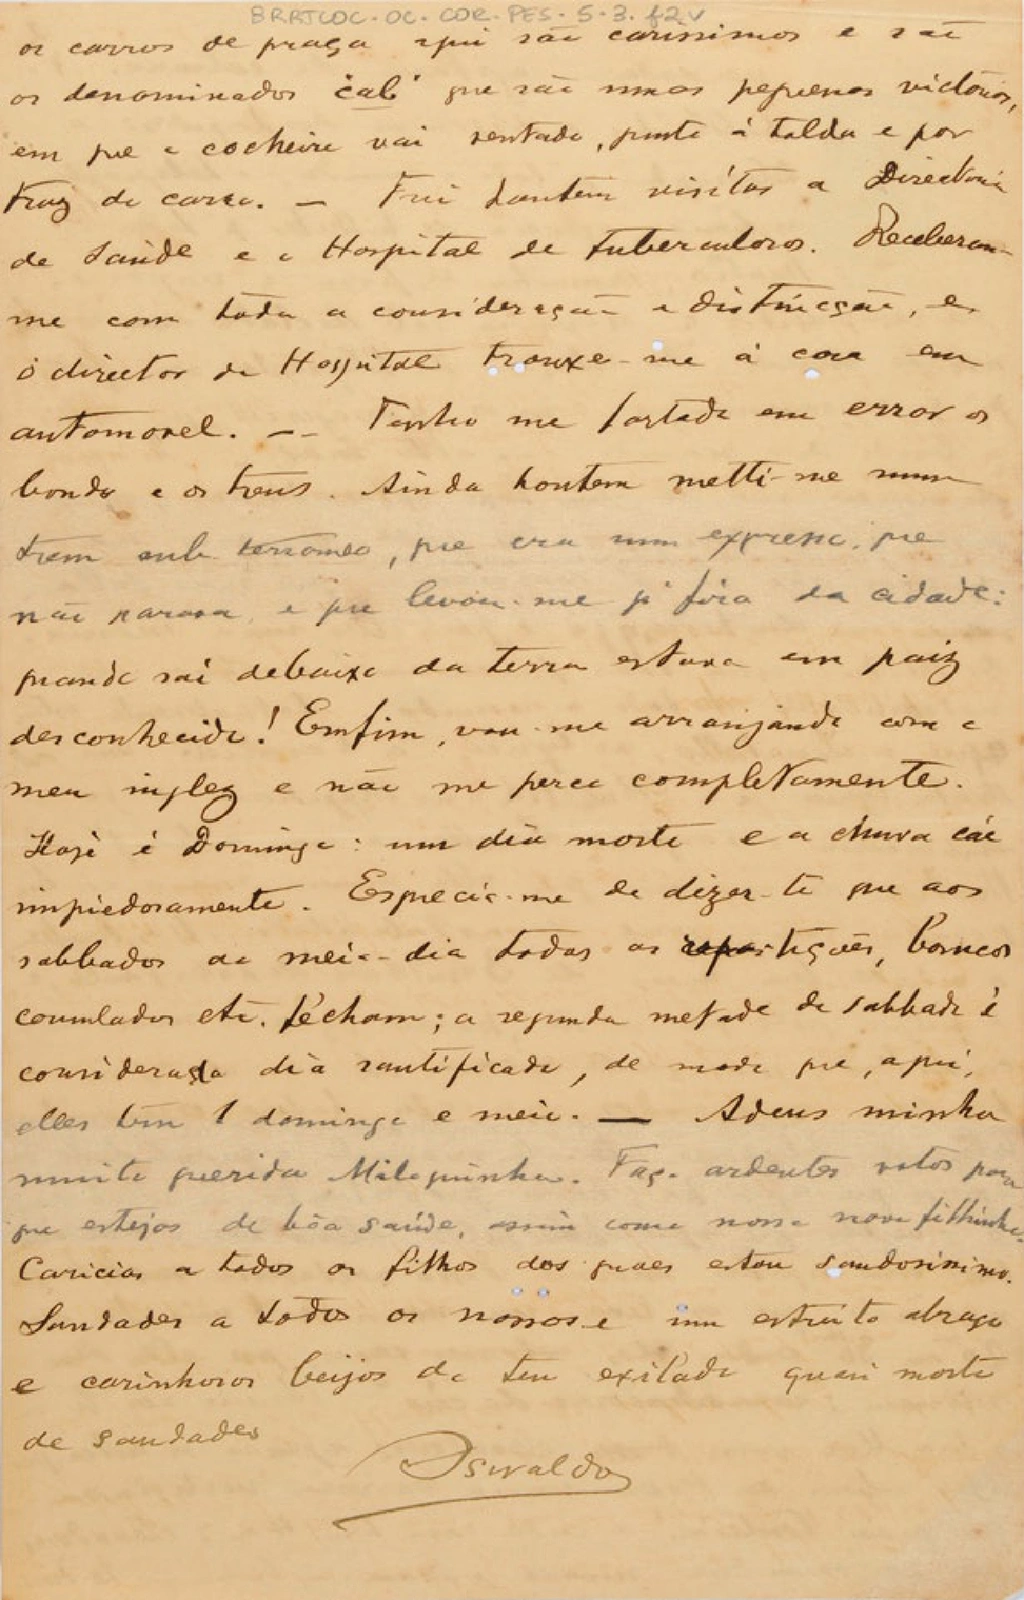 BR RJCOC. OC. COR. PES. 5-3. f2v
os carros de praça aqui são carissimos e são
os denominados "cab" que são umas pequenas victorias,
em que o cocheiro vai sentado, junto á tolda e por
traz do carro. — Fui hontem visitar a Directoria
de Saúde e o Hospital de tuberculosos. Receberam-
me com toda a consideração e distincção, e
o director do Hospital trouxe-me á casa em
automovel. — Tenho me fartado em errar os
bonds e os trens. Ainda hontem metti-me num
trem subterraneo, que era um expresso, que
não parava, e que levou-me p'fóra da cidade:
quando saí debaixo da terra estava em paiz
desconhecido! Emfim, vou-me arranjando com o
meu inglez e não me perco completamente.
Hoje é Domingo: um dia morto e a chuva cáe
impiedosamente. Esqueci-me de dizer-te que aos
sabbados ao meio-dia todas as repartições, bancos
consulados etc. fecham; a segunda metade do sabbado é
considerada dia santificado, de modo que, aqui,
elles têm 1 domingo e meio. — Adeus minha
muito querida Miloquinha. Faço ardentes votos para
que estejas de bôa saúde, assim como nosso novo filhinho.
Caricias a todos os filhos dos quaes estou saudosissimo.
Saudades a todos os nossos e um estreito abraço
e carinhosos beijos do teu exilado quasi morto
de saudades
Oswaldo